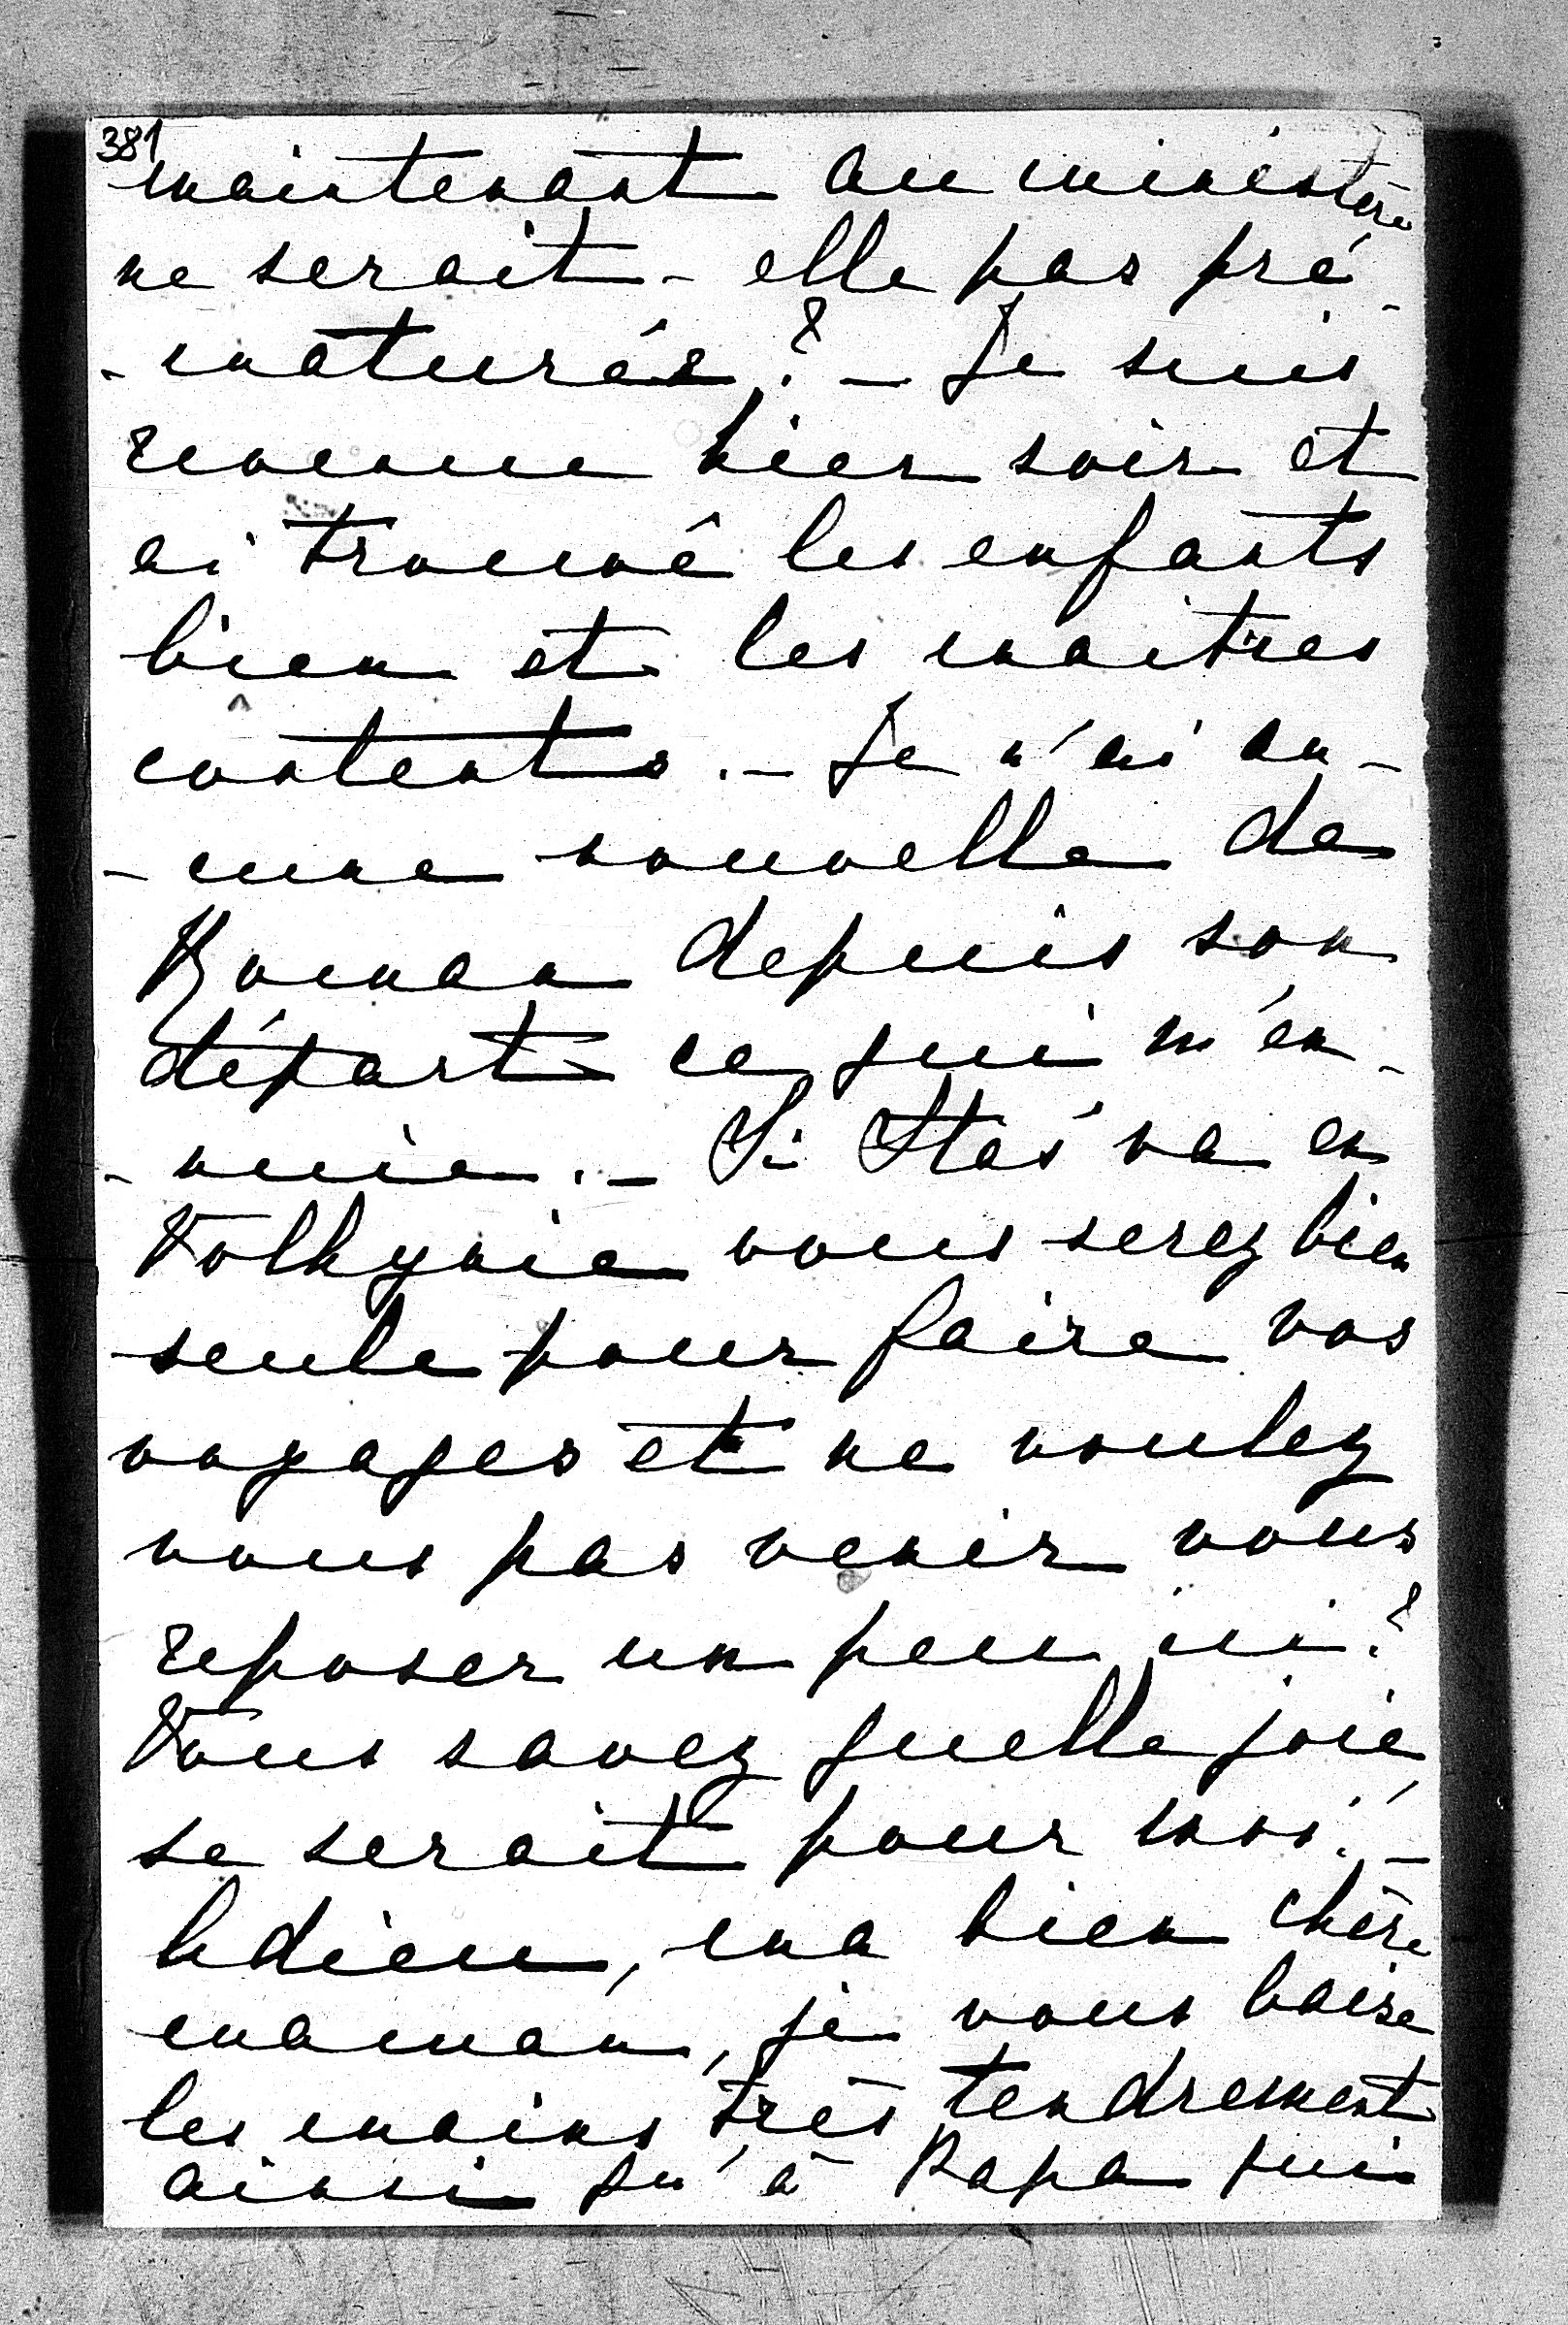 381
maintenant au ministère
ne serait-elle pas pré-
-maturée? — Je suis
revenue hier soir et
ai trouvé les enfants
bien et les maitres
contents. — Je n'ai au-
-cune nouvelle de
Roman depuis son
départ ce qui m'en-
-nuie. — Si Staś va en
Volhynie vous serez bien
seule pour faire vos
voyages et ne voulez
vous pas venir vous
reposer un peu ici?
Vous savez quelle joie
se serait pour moi. —
Adieu, ma bien chère
maman, je vous baise
les mains très tendrement
ainsi qu'à Papa qui